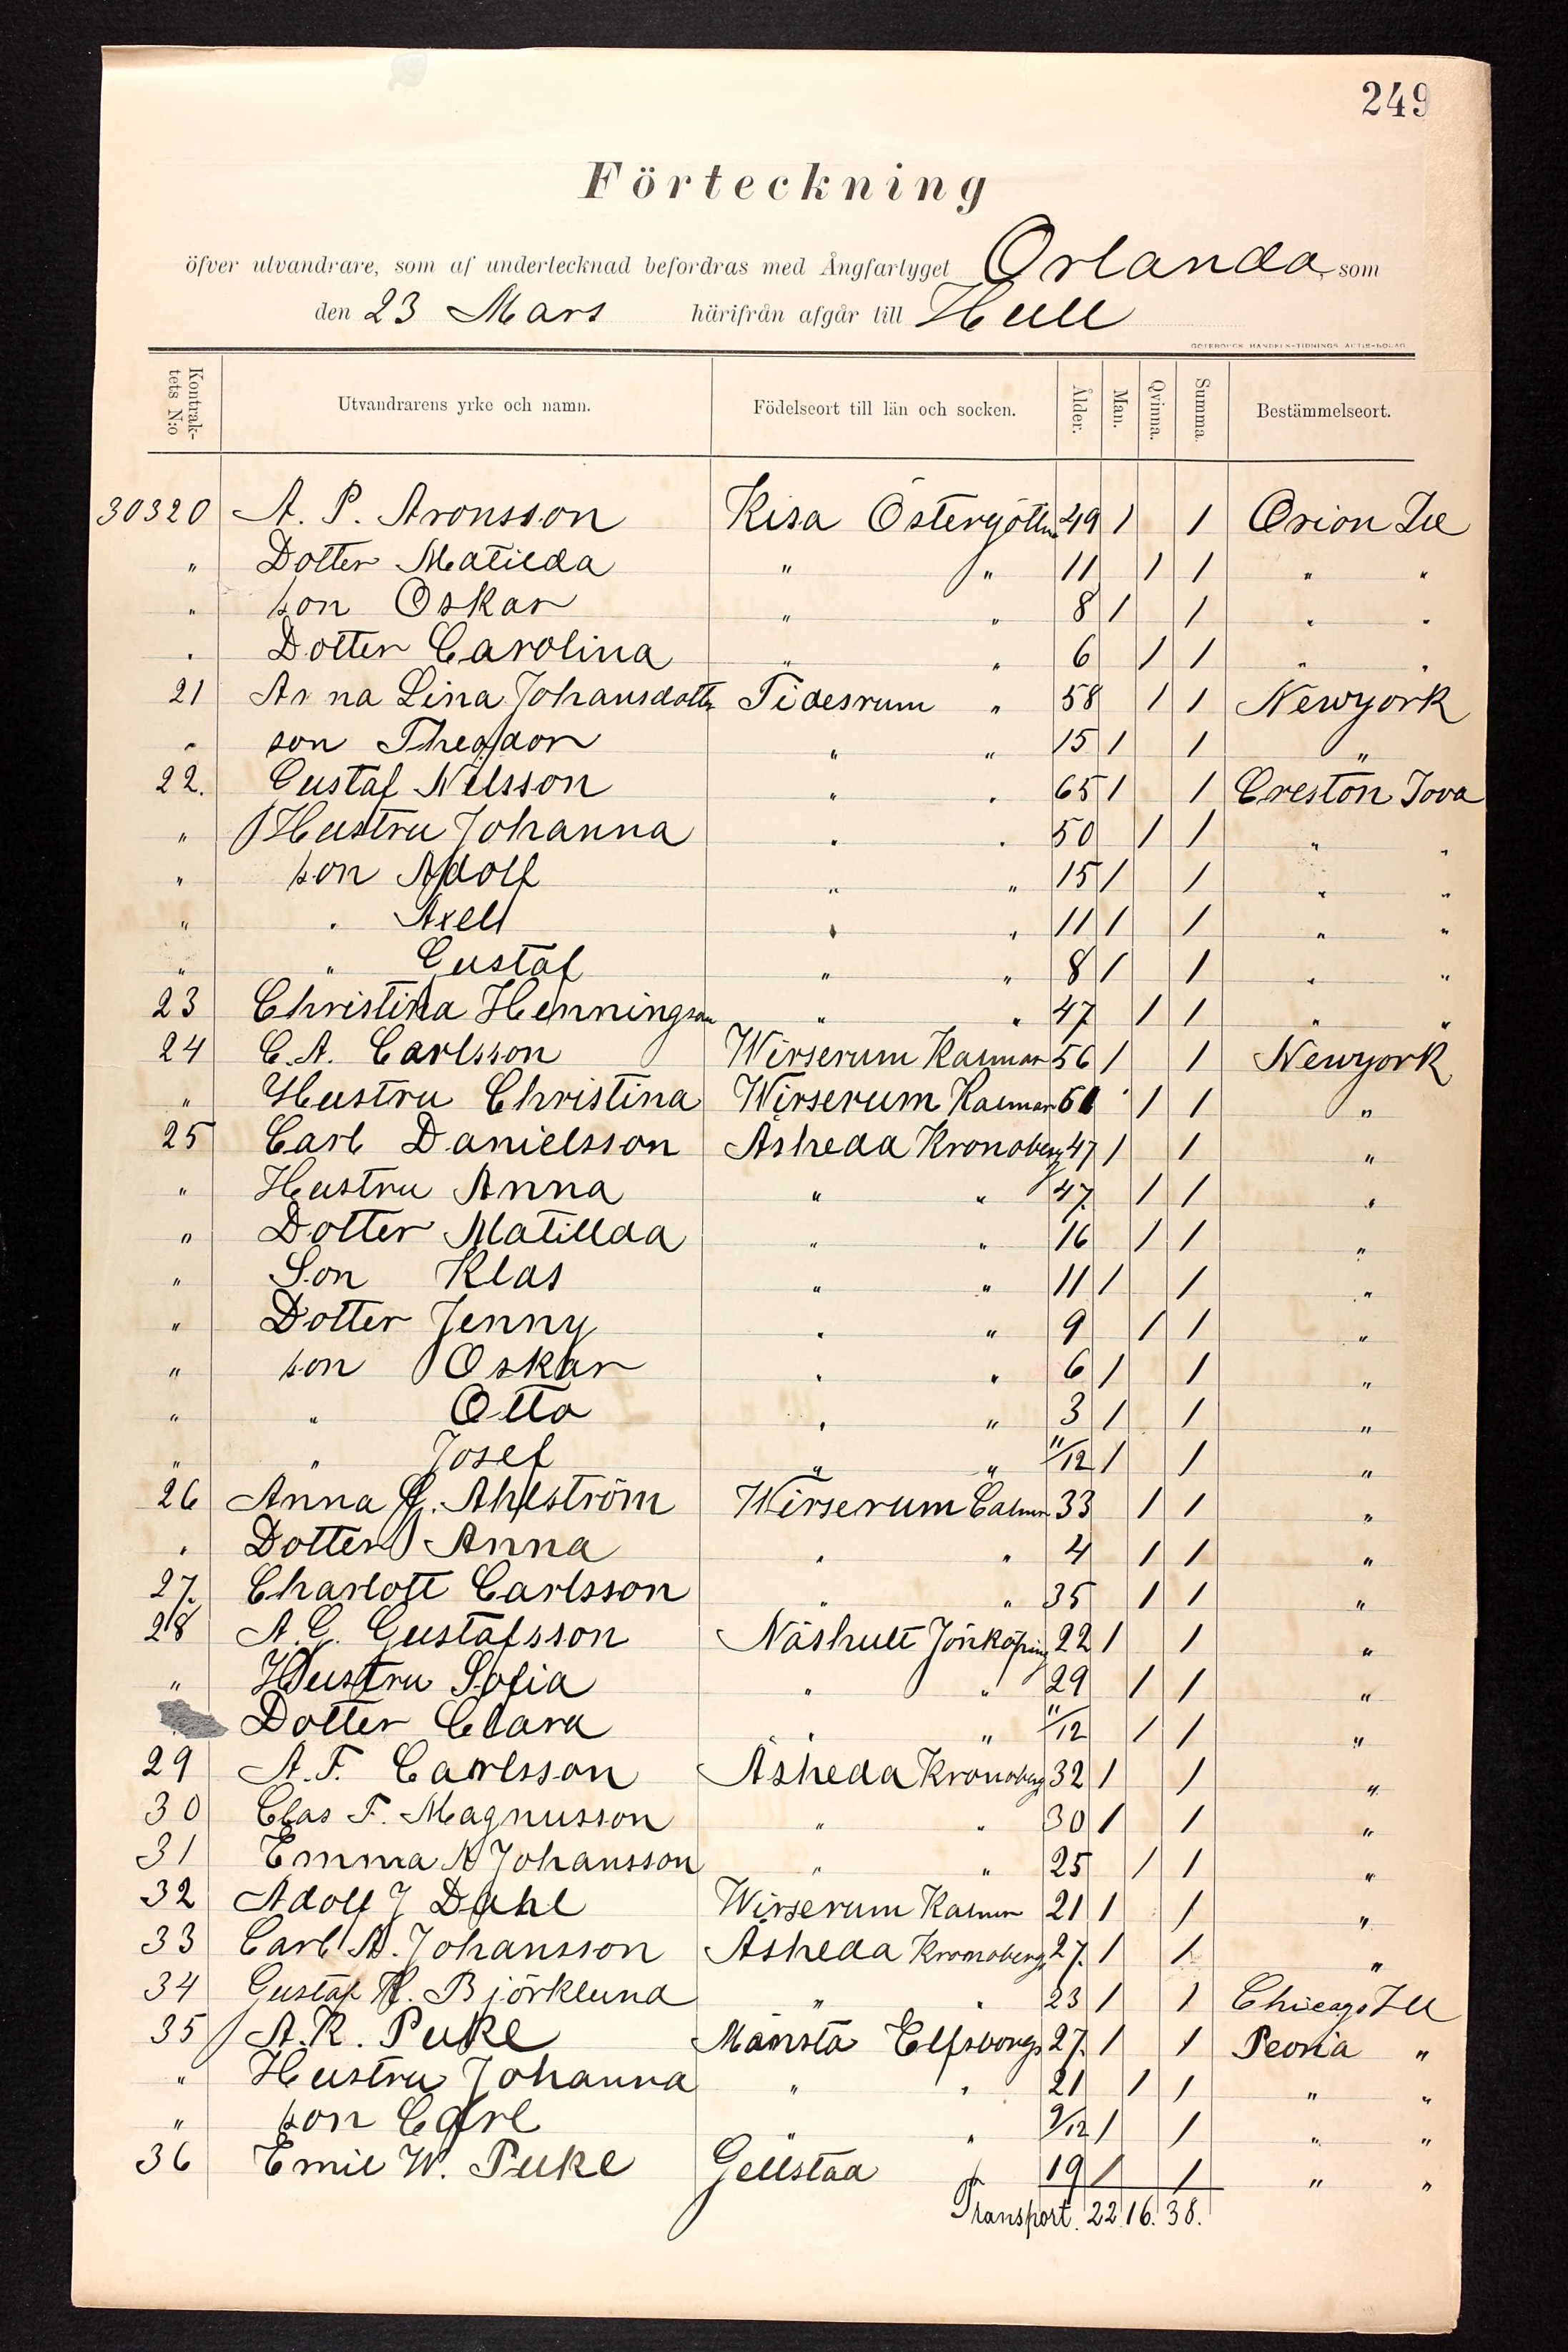 249
Förteckning
öfver utvandrare, som af undertecknad befordras med Ångfartyget Orlanda, som
den 23 Mars härifrån afgår till Hull
GÖTEBORGS HANDELS-TIDNINGS AKTIE-BOLAG
Kontrak-tets N:o Utvandrarens yrke och namn. Födelseort till län och socken. Ålder. Man. Qvinna. Summa. Bestämmelseort.
30320 A. P. Aronsson Kisa Östergötln 49 1 1 Orion Ill
" Dotter Matilda " " 11 1 1 " "
" son Oskar " " 8 1 1 " "
" Dotter Carolina " " 6 1 1 " "
21 Anna Lina Johansdottr Tidesrum " 58 1 1 Newyork
" son Theodor " " 15 1 1 "
22. Gustaf Nilsson " " 65 1 1 Creston Iova
" Hustru Johanna " " 50 1 1 " "
" son Adolf " " 15 1 1 " "
" " Axell " " 11 1 1 " "
" " Gustaf " " 8 1 1 " "
23 Christina Henningson " " 47 1 1 " "
24 C. A. Carlsson Wirserum Kalmar 56 1 1 Newyork
" Hustru Christina Wirserum Kalmar 1 1 "
25 Carl Danielsson Asheda Kronoberg 47 1 1 "
" Hustru Anna " " 47. 1 1 "
" Dotter Matillda " " 16 1 1 "
" Son Klas " " 11 1 1 "
" Dotter Jenny " " 9 1 1 "
" son Oskar " " 6 1 1 "
" " Otto " " 3 1 1 "
" " Josef " " 11/12 1 1 "
26 Anna C. Ahlström Wirserum Calmr 33 1 1 "
" Dotter Anna " " 4 1 1 "
27. Charlott Carlsson " " 35 1 1 "
28 A. G. Gustafsson Näshult Jönköping 22 1 1 "
" Hustru Sofia " " 29 1 1 "
Dotter Clara " " 11/12 1 1 "
29 A. F. Carlsson Åsheda Kronoberg 32 1 1 "
30 Clas F. Magnusson " " 30 1 1 "
31 Emma A Johansson " " 25 1 1 "
32 Adolf J Dahl Wirserum Kalmar 21 1 1 "
33 Carl A. Johansson Åsheda Kronoberg 27. 1 1 "
34 Gustaf A. Björklund " " 23 1 1 Chicago Ill
35 A. R. Puke Månsta Elfsborgs 27. 1 1 Peoria "
" Hustru Johanna " " 21 1 1 " "
" son Carl " " 9/12 1 1 " "
36 Emil W. Puke Gellstad " 19 1 1 " "
Transport. 22. 16. 38.